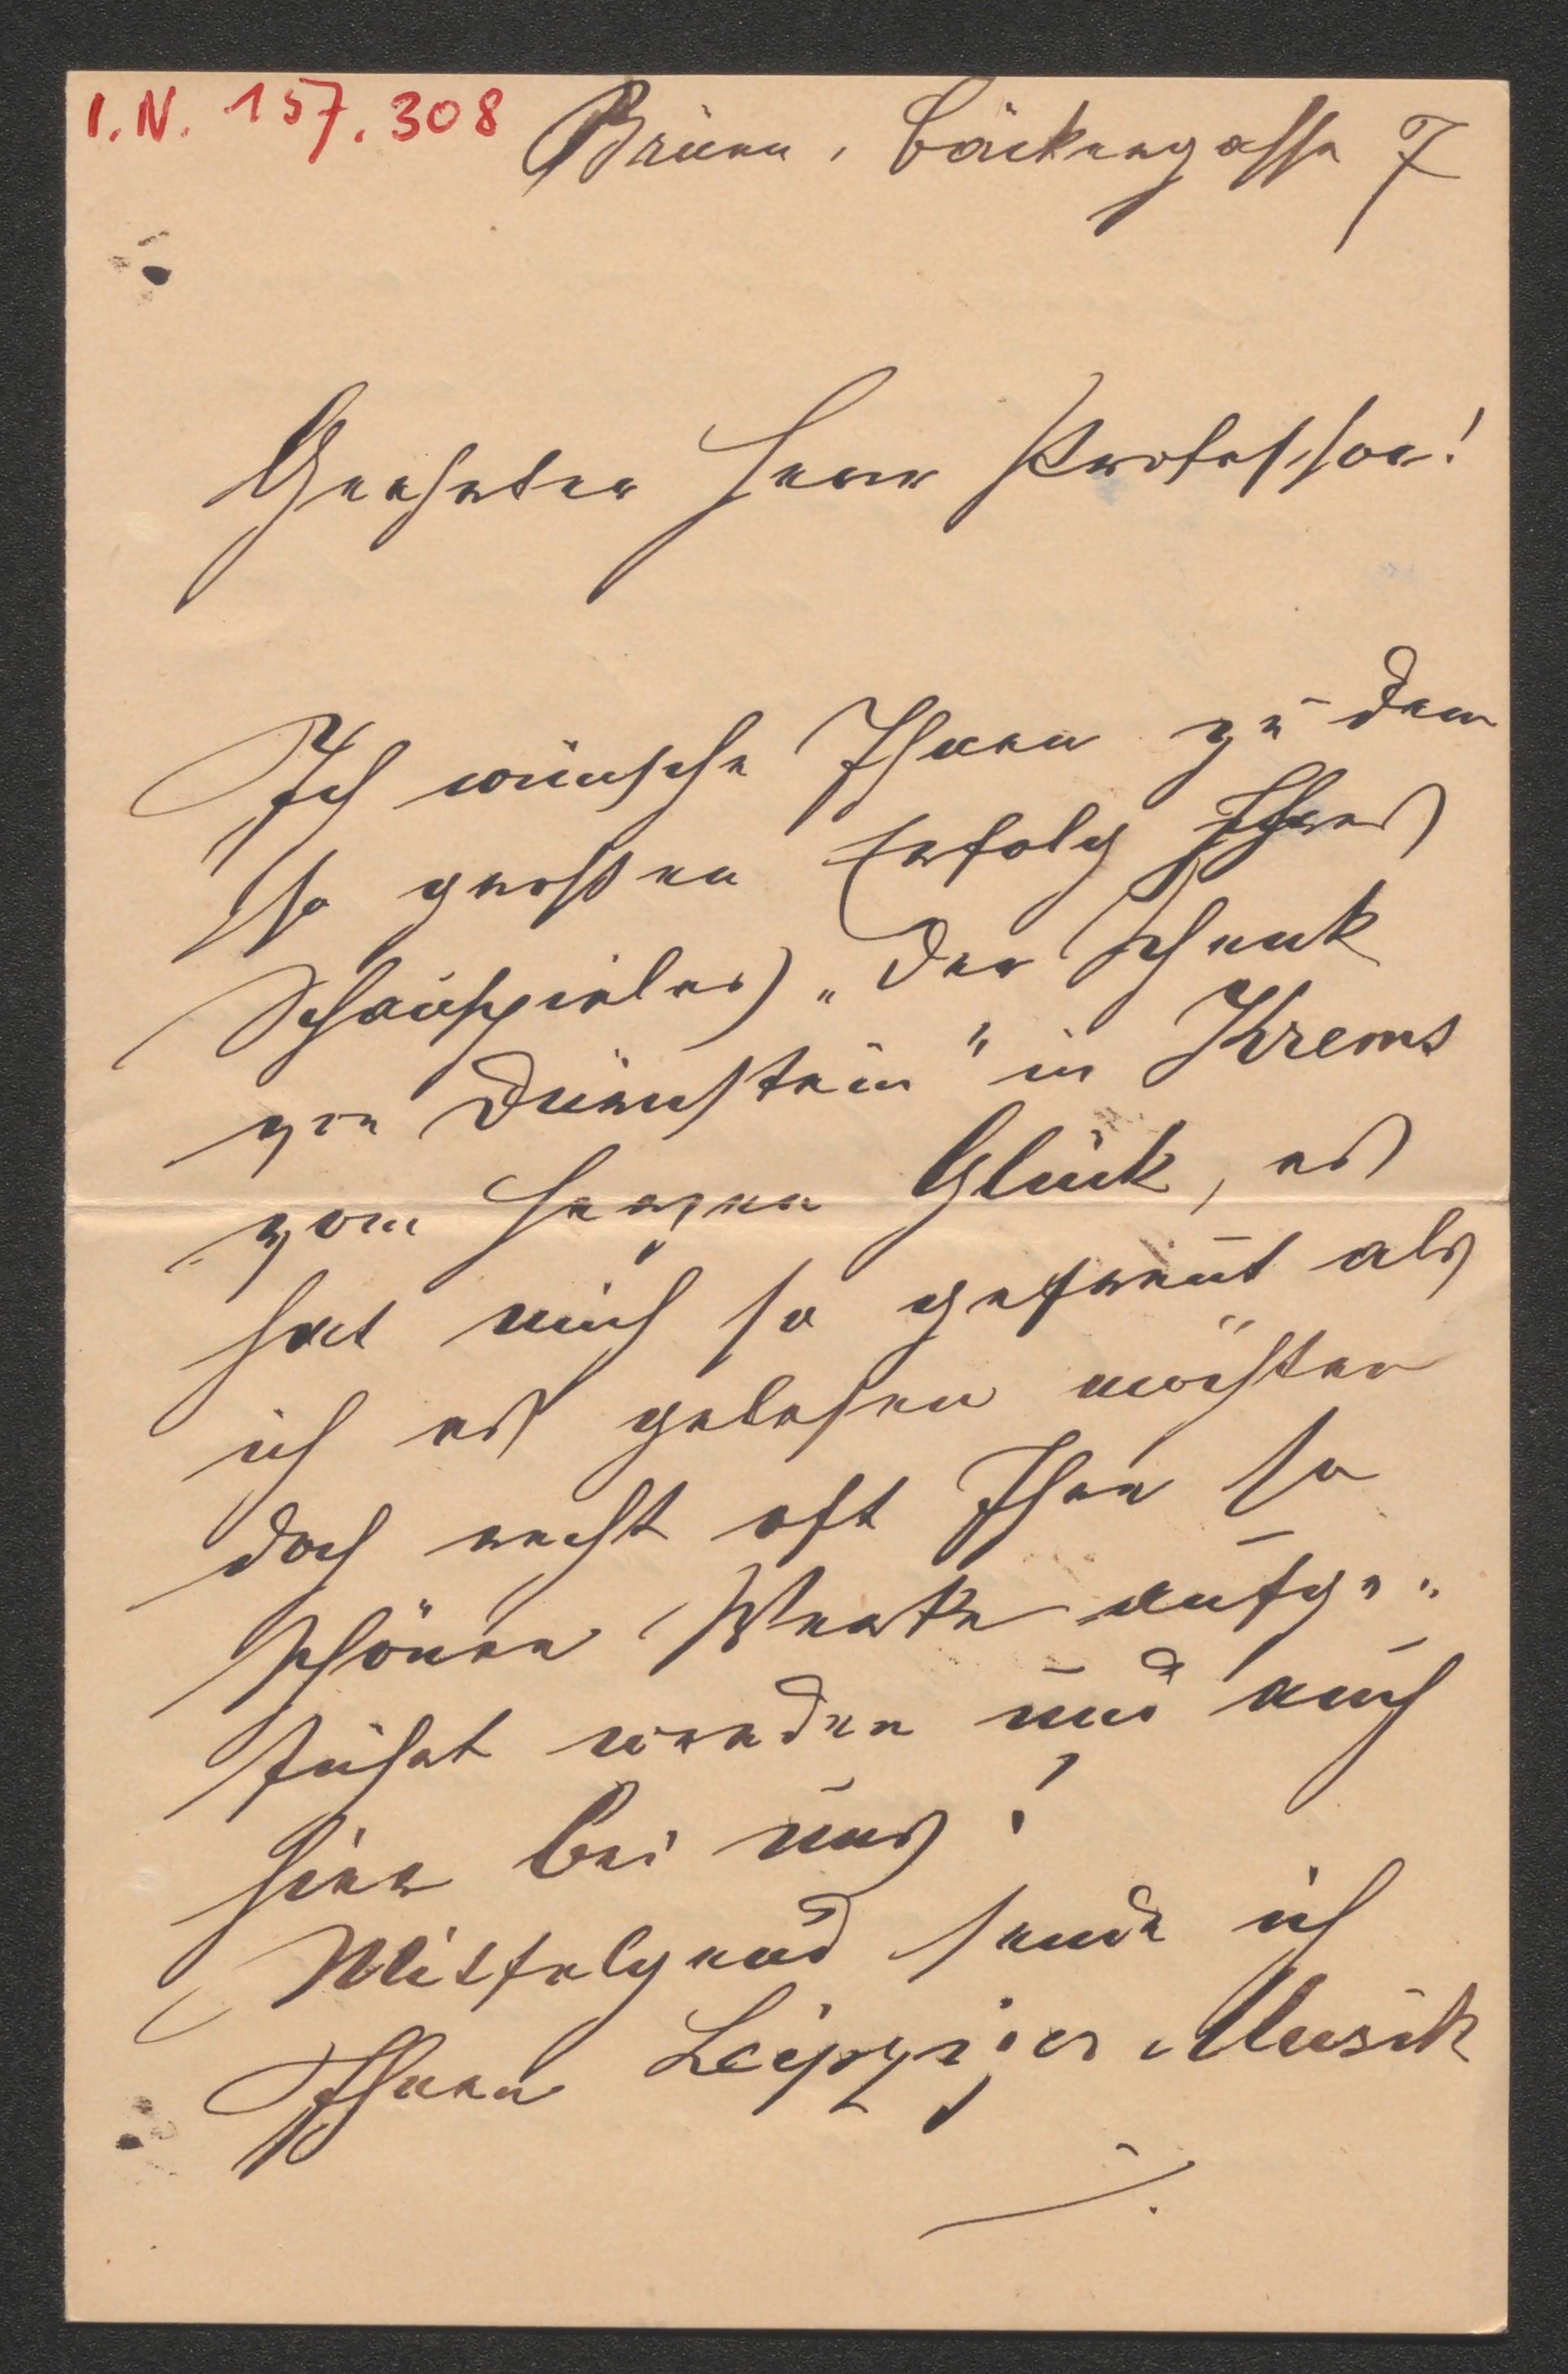 I.N. 157.308
Brünn, Bäckergasse 7
Geehrter Herr Professor!
Ich wünsche Ihnen zu dem
so großen Erfolg Ihres
Schauspieles „Der Schenk
von Dürnstein" in Krems
vom Herzen Glück, es
hat mich so gefreut als
ich es gelesen möchten
doch recht oft Ihre so
schönen Werke aufge-
führt werden und auch
hier bei uns!
Mitfolgend sende ich
Ihnen Leipziger Musik